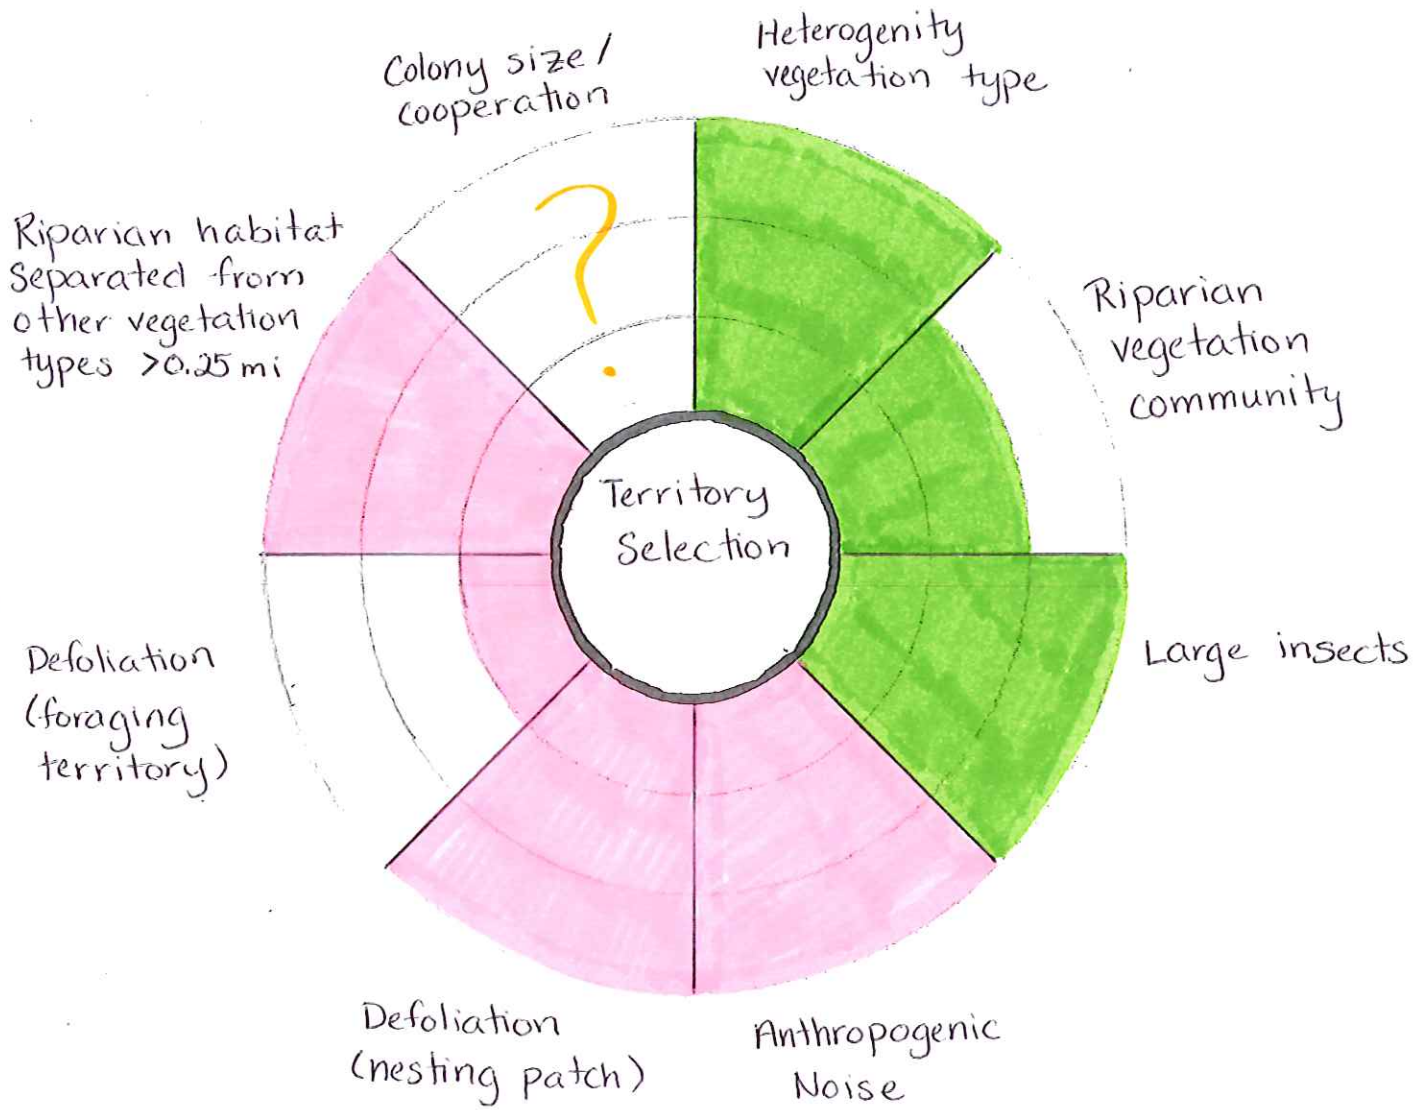 Colony size /
cooperation
Heterogenity
vegetation type
Riparian habitat
Separated from
other vegetation
types >0.25 mi
?
Riparian
vegetation
community
Territory
Selection
Large insects
Defoliation
(foraging
territory)
Defoliation
(nesting patch)
Anthropogenic
Noise